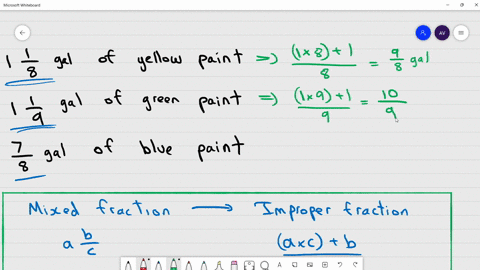 Microsoft Whiteboard
AV
1 1/8 gal of yellow paint => (1x8)+1/8 = 9/8 gal
1 1/9 gal of green paint => (1x9)+1/9 = 10/9
7/8 gal of blue paint
Mixed fraction → Improper fraction
a b/c (axc)+b